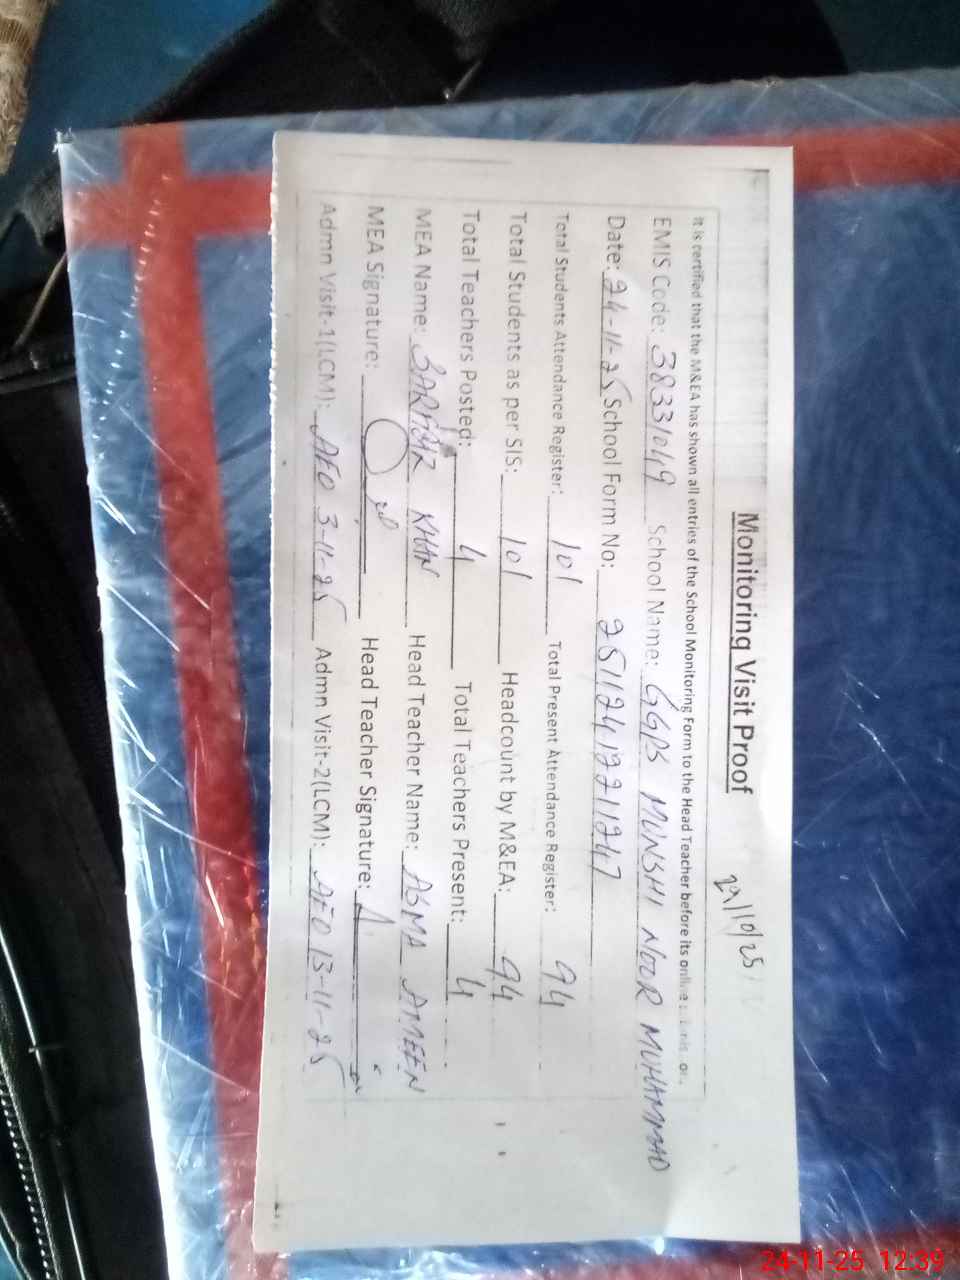 29/10/25
Monitoring Visit Proof
It is certified that the M&EA has shown all entries of the School Monitoring Form to the Head Teacher before its online
EMIS Code: 38331049 School Name: GGPS MUNSHI NOOR MUHAMMAD
Date: 24-11-25 School Form No: 25112412211247
Total Students Attendance Register: 101 Total Present Attendance Register: 94
Total Students as per SIS: 101 Headcount by M&EA: 94
Total Teachers Posted: 4 Total Teachers Present: 4
MEA Name: KHAN Head Teacher Name: ASMA AMEEN
MEA Signature: Head Teacher Signature:
Admn Visit-1(LCM): AEO 3-11-25 Admn Visit-2(LCM): AEO 13-11-25
24-11-25 12:39